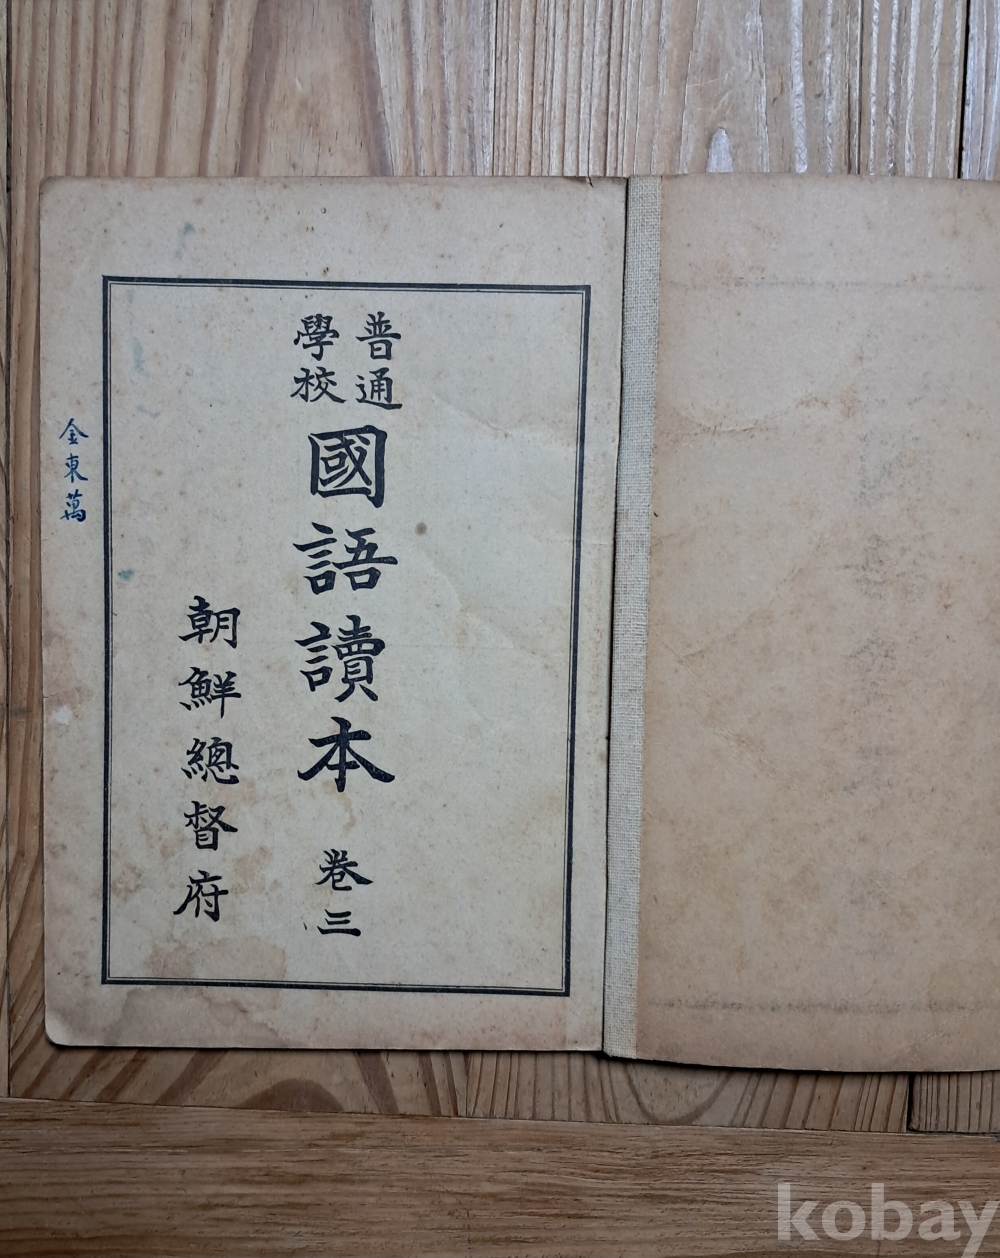 普通
學校
國語讀本 卷三
朝鮮總督府
金東萬
kobay